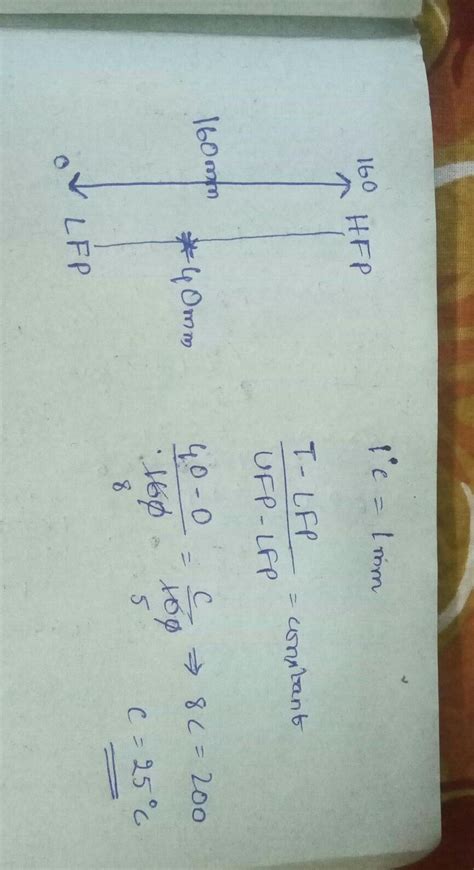 160 HFP
160mm
40mm
0 LFP
1°C = 1mm
T - LFP / UFP - LFP = constant
40 - 0 / 160 = C / 100 ⇒ 8C = 200
8 5
C = 25°C